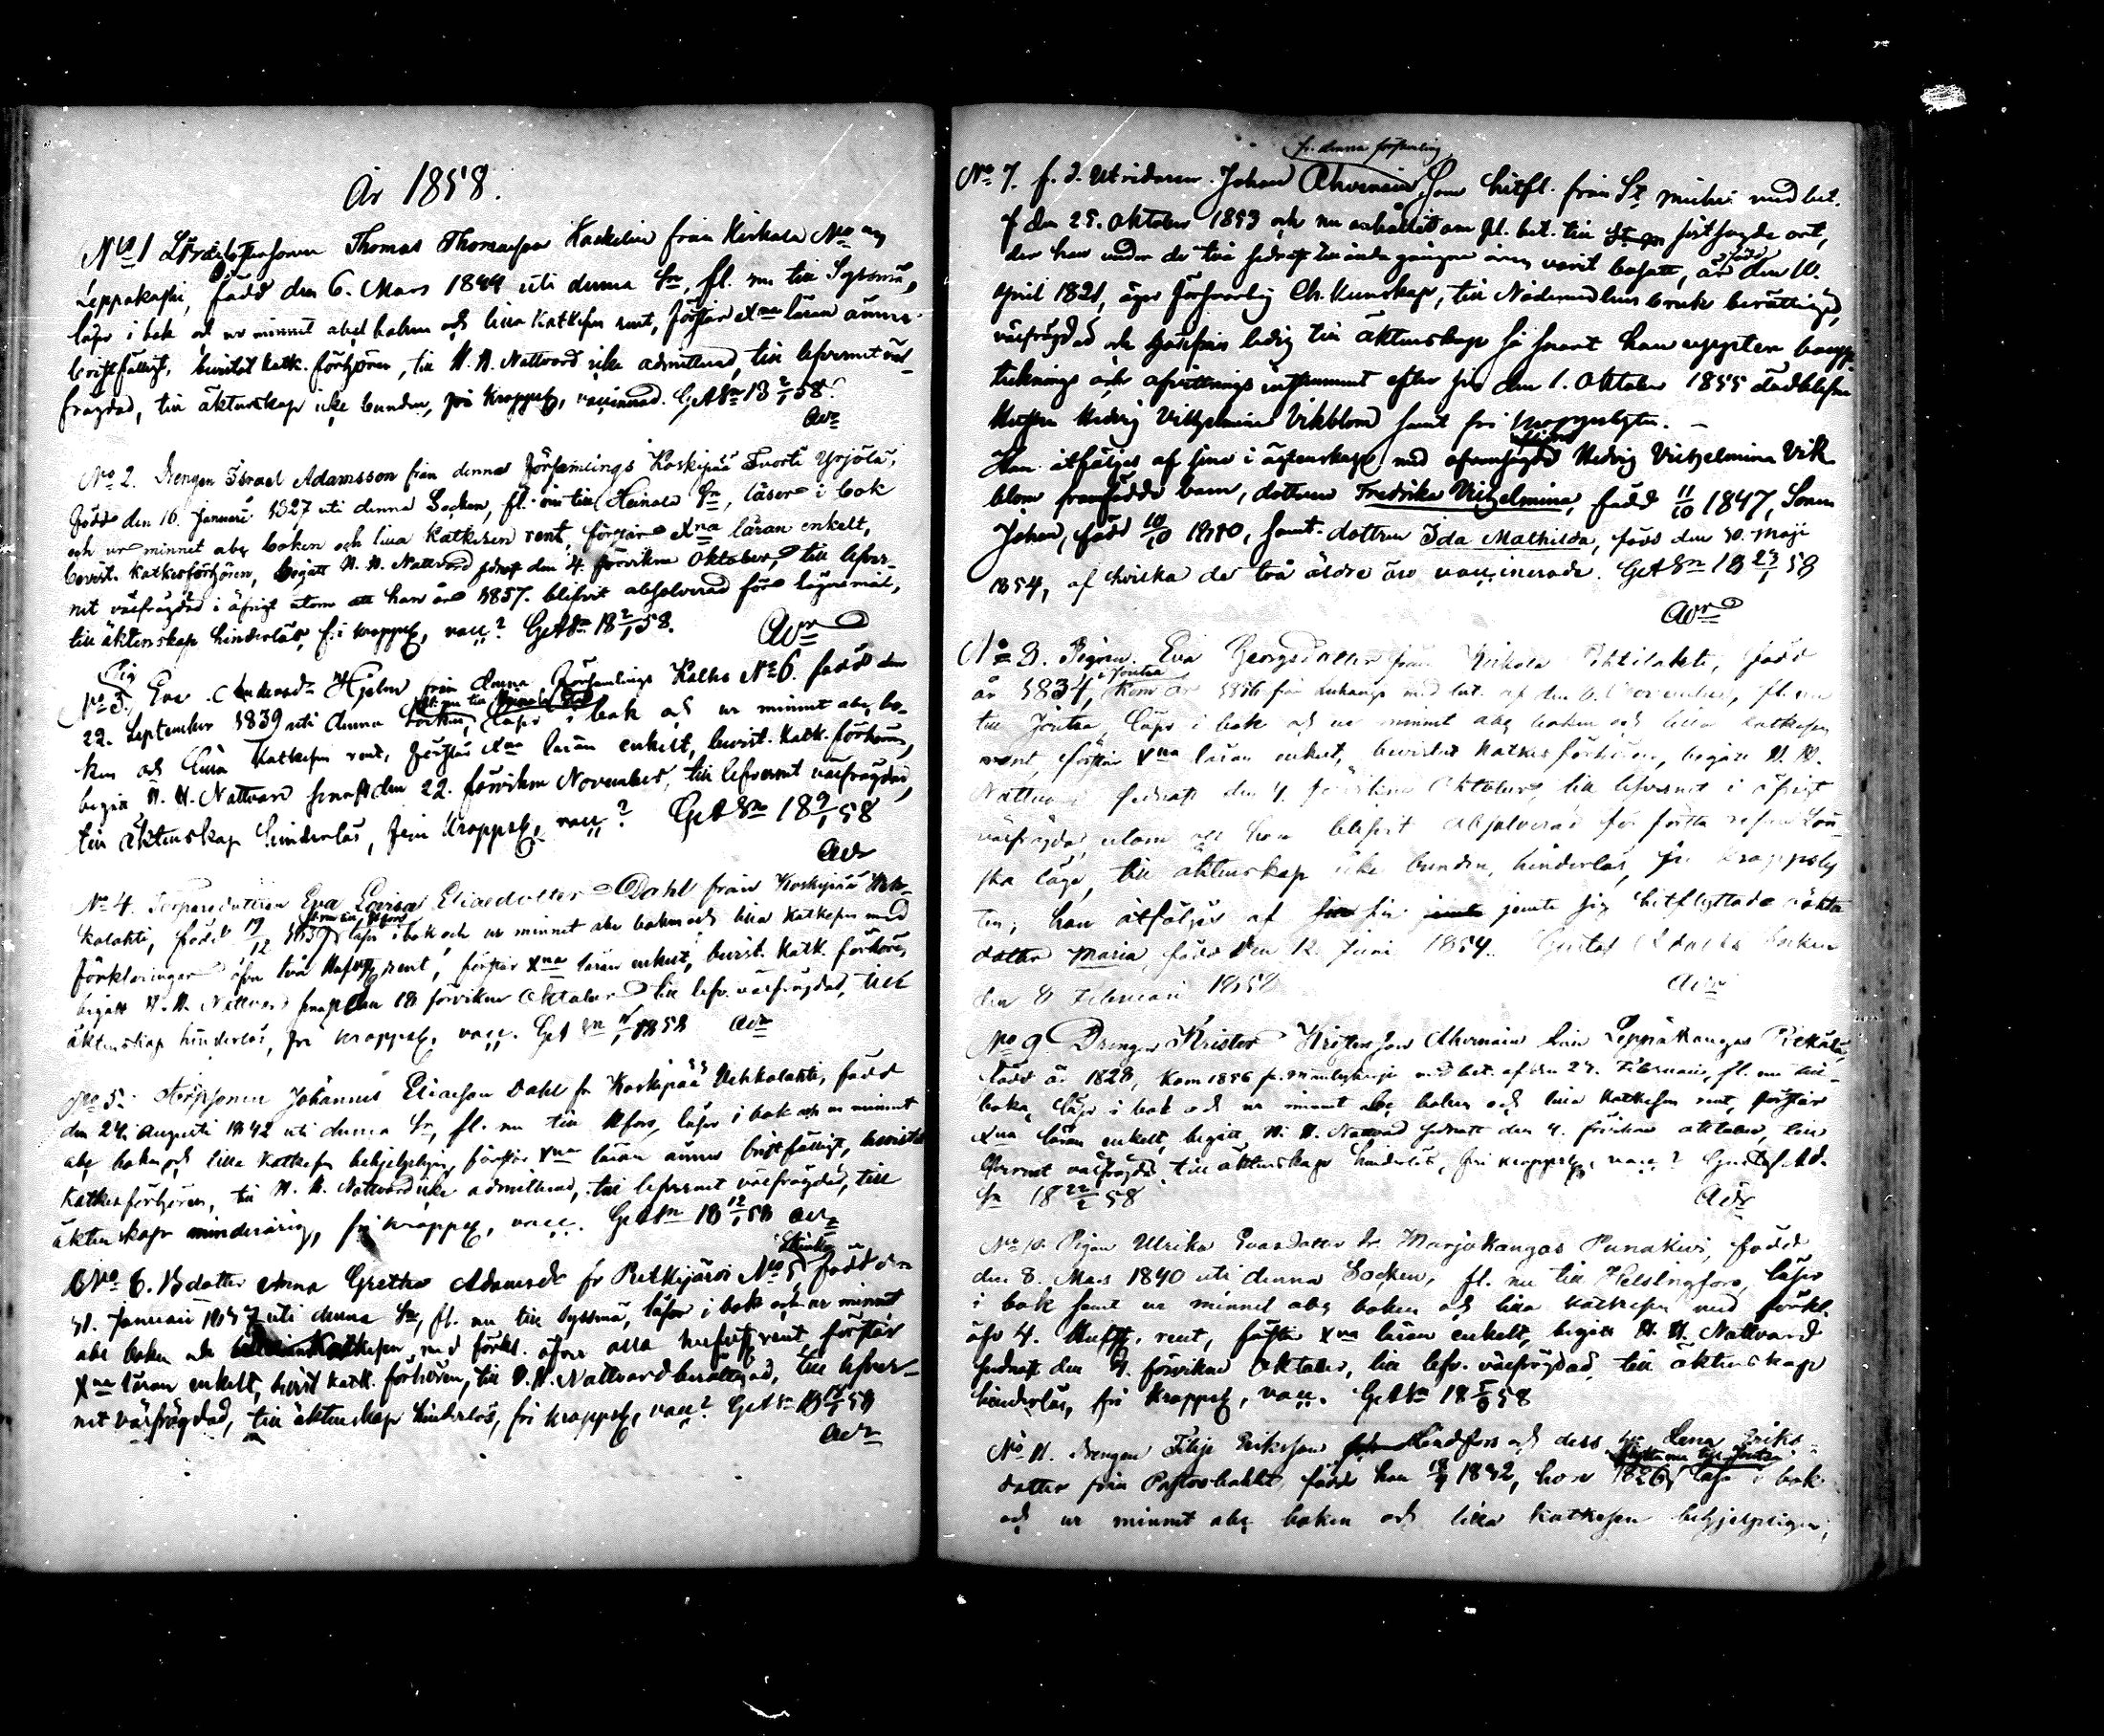 År 1858.
No 1 Thomas Thomasson från No
Leppakoski, född den 6. Mars 1844 uti denna Sn, fl. nu till Sysmä,
läser i bok och ur minnet abc boken och lilla Katkesen rent, förstår Xna läran ännu
bristfälligt, bevistat katk. förhören, till H. H. Nattvard icke admitterad, till lefvernet väl-
frägdad, till äktenskap icke bunden, fri kroppsl, vaccinerad. GtA Sn 18 2/1 58.
Adr
No 2. Drengen Israel Adamsson från denna Församlings Koskipää Yrjölä,
född den 16. Januari 1827 uti denna Socken, fl. nu till Heinola Sn, läser i bok
och ur minnet abc boken och lilla Katkesen rent, förstår Xna läran enkelt,
bevist. Katkesförhören, begått H. H. Nattvard sednast den 4. förvikne Oktober, till lefver-
net välfrägdad i öfrigt utom att han år 1857. blifvit absolverad för lägersmål,
till äktenskap hinderlös, fri kroppsl, vacc? GtA Sn 18 2/1 58.
Adr
Pig
No 3. Eva Hjelm från denna Församlings Kalho No 6. född den
22. September 1839 uti denna Socken, läser i bok och ur minnet abc bo-
ken och lilla Katkesen rent, förstår Xna läran enkelt, bevist. Katk. förhören,
begått H. H. Nattvard sednast den 22. förvikne November, till lefvernet välfrägdad,
till äktenskap hinderlös, fri kroppsl, vacc? GtA Sn 18 9/1 58
Adr
No 4. Torparedottren Eva Lovisa Eliaedotter Dahl från Koskipää Veh-
kalahti, född 19/12 1839, läser i bok och ur minnet abc boken och lilla Katkesen med
Förklaringen öfver två Hufvst. rent, förstår Xna läran enkelt, bevist. Katk. förhören,
begått H. H. Nattvard sednast den 18 förvikne Oktober till lefv. välfrägdad, till
äktenskap hinderlös, fri kroppsl, vacc. GtA Sn 1858 Adr
No 5. Johannes Eliasson Dahl fr Koskipää Vehkalahti, född
den 24. Augusti 1842 uti denna Sn, fl. nu till läser i bok och ur minnet
abc boken och lilla Katkesen behjelpligen, förstår Xna läran ännu bristfälligt, bevistat
Katkesförhören, till H. H. Nattvard icke admitterad, till lefvernet välfrägdad, till
äktenskap minderårig, fri kroppsl, vacc. GtA Sn 18 12/1 58 Adr
No 6. Bdotter Anna Gretha Adamsdr fr Putkijärvi No 5, född den
31. Januari 1837 uti denna Sn, fl. nu till Sysmä, läser i bok och ur minnet
abc boken och Katkesen med förkl. öfver alla hufvst rent, förstår
Xna läran enkelt, bevist Katk. förhören, till H. H. Nattvard berättigad, till lefver-
net välfrägdad, till äktenskap hinderlös, fri kroppsl, vacc? GtA Sn 58
Adr
fr. denna församling
No 7. f. d. Utridaren Johan Ahvenain, som hitfl. från St Michel med bet.
af den 25. Oktober 1853 och nu anhållit om fl. bet. till sistsagde ort,
der han under de två sednast till ända gångne åren varit bosatt, är född den 10.
April 1821, äger försvarlig Ch. Kunskap, till Nådemedlens bruk berättigad,
välfrägdad och ledig till äktenskap så snart han uppter boupp
tecknings och afvittrings instrument efter sin den 1. Oktober 1855 dödblefne
Hustru Hedvig Vilhelmina Vikblom samt fri kroppslyten.
Han åtföljes af sine i äktenskapet med ofvansagde Hedvig Vilhelmina Vik
blom framfödde barn, dottren Fredrika Vilhelmina, född 11/10 1847, Sonen
Johan, född 10/10 1850, samt dottren Ida Mathilda, född den 30. Maji
1854, af hvilka de två äldre äro vaccinerade. GtA Sn 18 23/1 58
Adr
No 8. Pigan Eva Georgsdotter från född
år 1834, kom år 1856 från Luhanga med bet. af den 6. November, fl. nu
till Joutsa, läser i bok och ur minnet abc boken och lilla Katkesen
rent, förstår Xna läran enkelt, bevistat Katkesförhören, begått H. H.
Nattvard sednast den 4. förvikne Oktober, till lefvernet i öfrigt
välfrägdad utom att hon blifvit absolverad för första resan
ska läger, till äktenskap icke bunden, hinderlös, fri kroppsly
ten; hon åtföljes af sin jemte sig hitflyttade oäkta
dotter Maria, född den 12. Juni 1854. Gustaf Adolfs Socken
den 8 Februari 1858
Adr
No 9. Drengen Krister Kristersson Ahvenain från Leppäkangas Piekälä,
född år 1828, kom 1856 fr. Mäntyharju med bet. af den 27. Februari, fl. nu till-
baka, läser i bok och ur minnet abc boken och lilla Katkesen rent, förstår
Xna läran enkelt, begått H. H. Nattvard sednast den 4. förvikne Oktober, till
lefvernet välfrägdad, till äktenskap hinderlös, fri kroppsl, vacc? Gustaf Ad.
Sn 18 22/2 58
Adr
No 10. Pigan Ulrika Evasdotter fr. Marjokangas Punakivi, född
den 8. Mars 1840 uti denna Socken, fl. nu till Helsingfors, läser
i bok samt ur minnet abc boken och lilla Katkesen med förkl.
öfv 4. Hufvst, rent, förstår Xna läran enkelt, begått H. H. Nattvard
sednast den 4. förvikne Oktober, till lefv. välfrägdad, till äktenskap
hinderlös, fri kroppsl, vacc. GtA Sn 18 58
No 11. Drengen Filip Eriksson Lindfors och dess hu Lena Eriks-
dotter från Pastorbackit, född han 1832, hon 1826, läsa i bok
och ur minnet abc boken och lilla Katkesen behjelpligen,